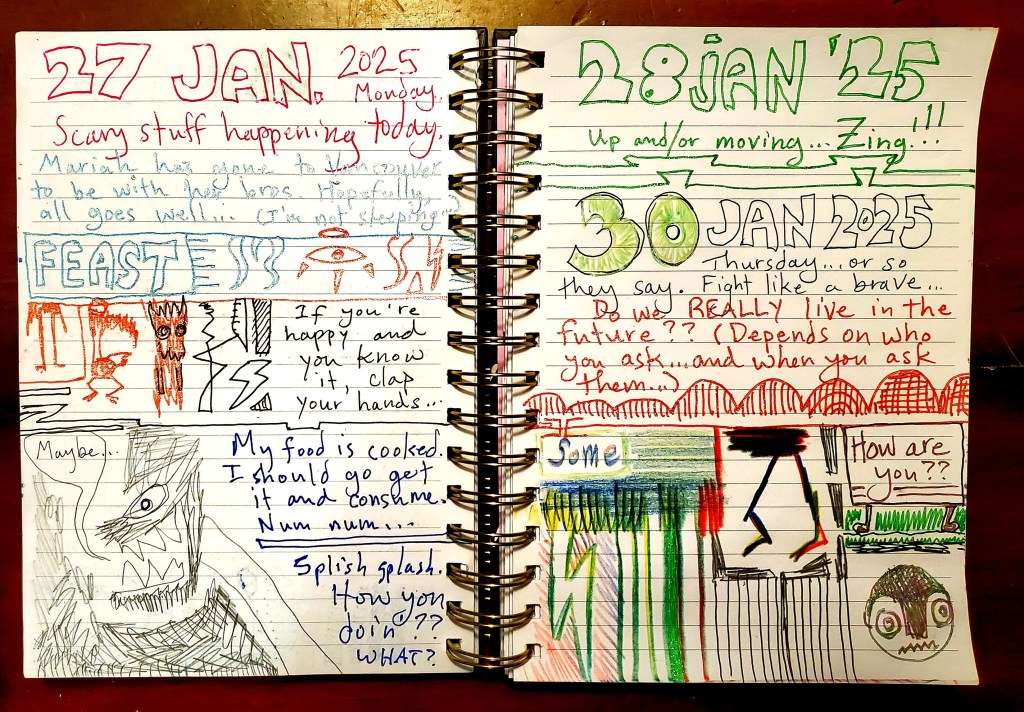 27 JAN. 2025
Monday.
Scary stuff happening today.
Mariah has gone to Vancouver
to be with her bros. Hopefully,
all goes well... (I'm not sleeping!!)
FEAST
If you're
happy and
you know
it, clap
your hands...
Maybe...
My food is cooked.
I should go get
it and consume.
Num num...
Splish splash.
How you
doin'??
WHAT?
28 JAN '25
Up and/or moving... Zing!!!
30 JAN 2025
Thursday... or so
they say. Fight like a brave...
Do we REALLY live in the
future?? (Depends on who
you ask...and when you ask
them...)
Some
How are
you??